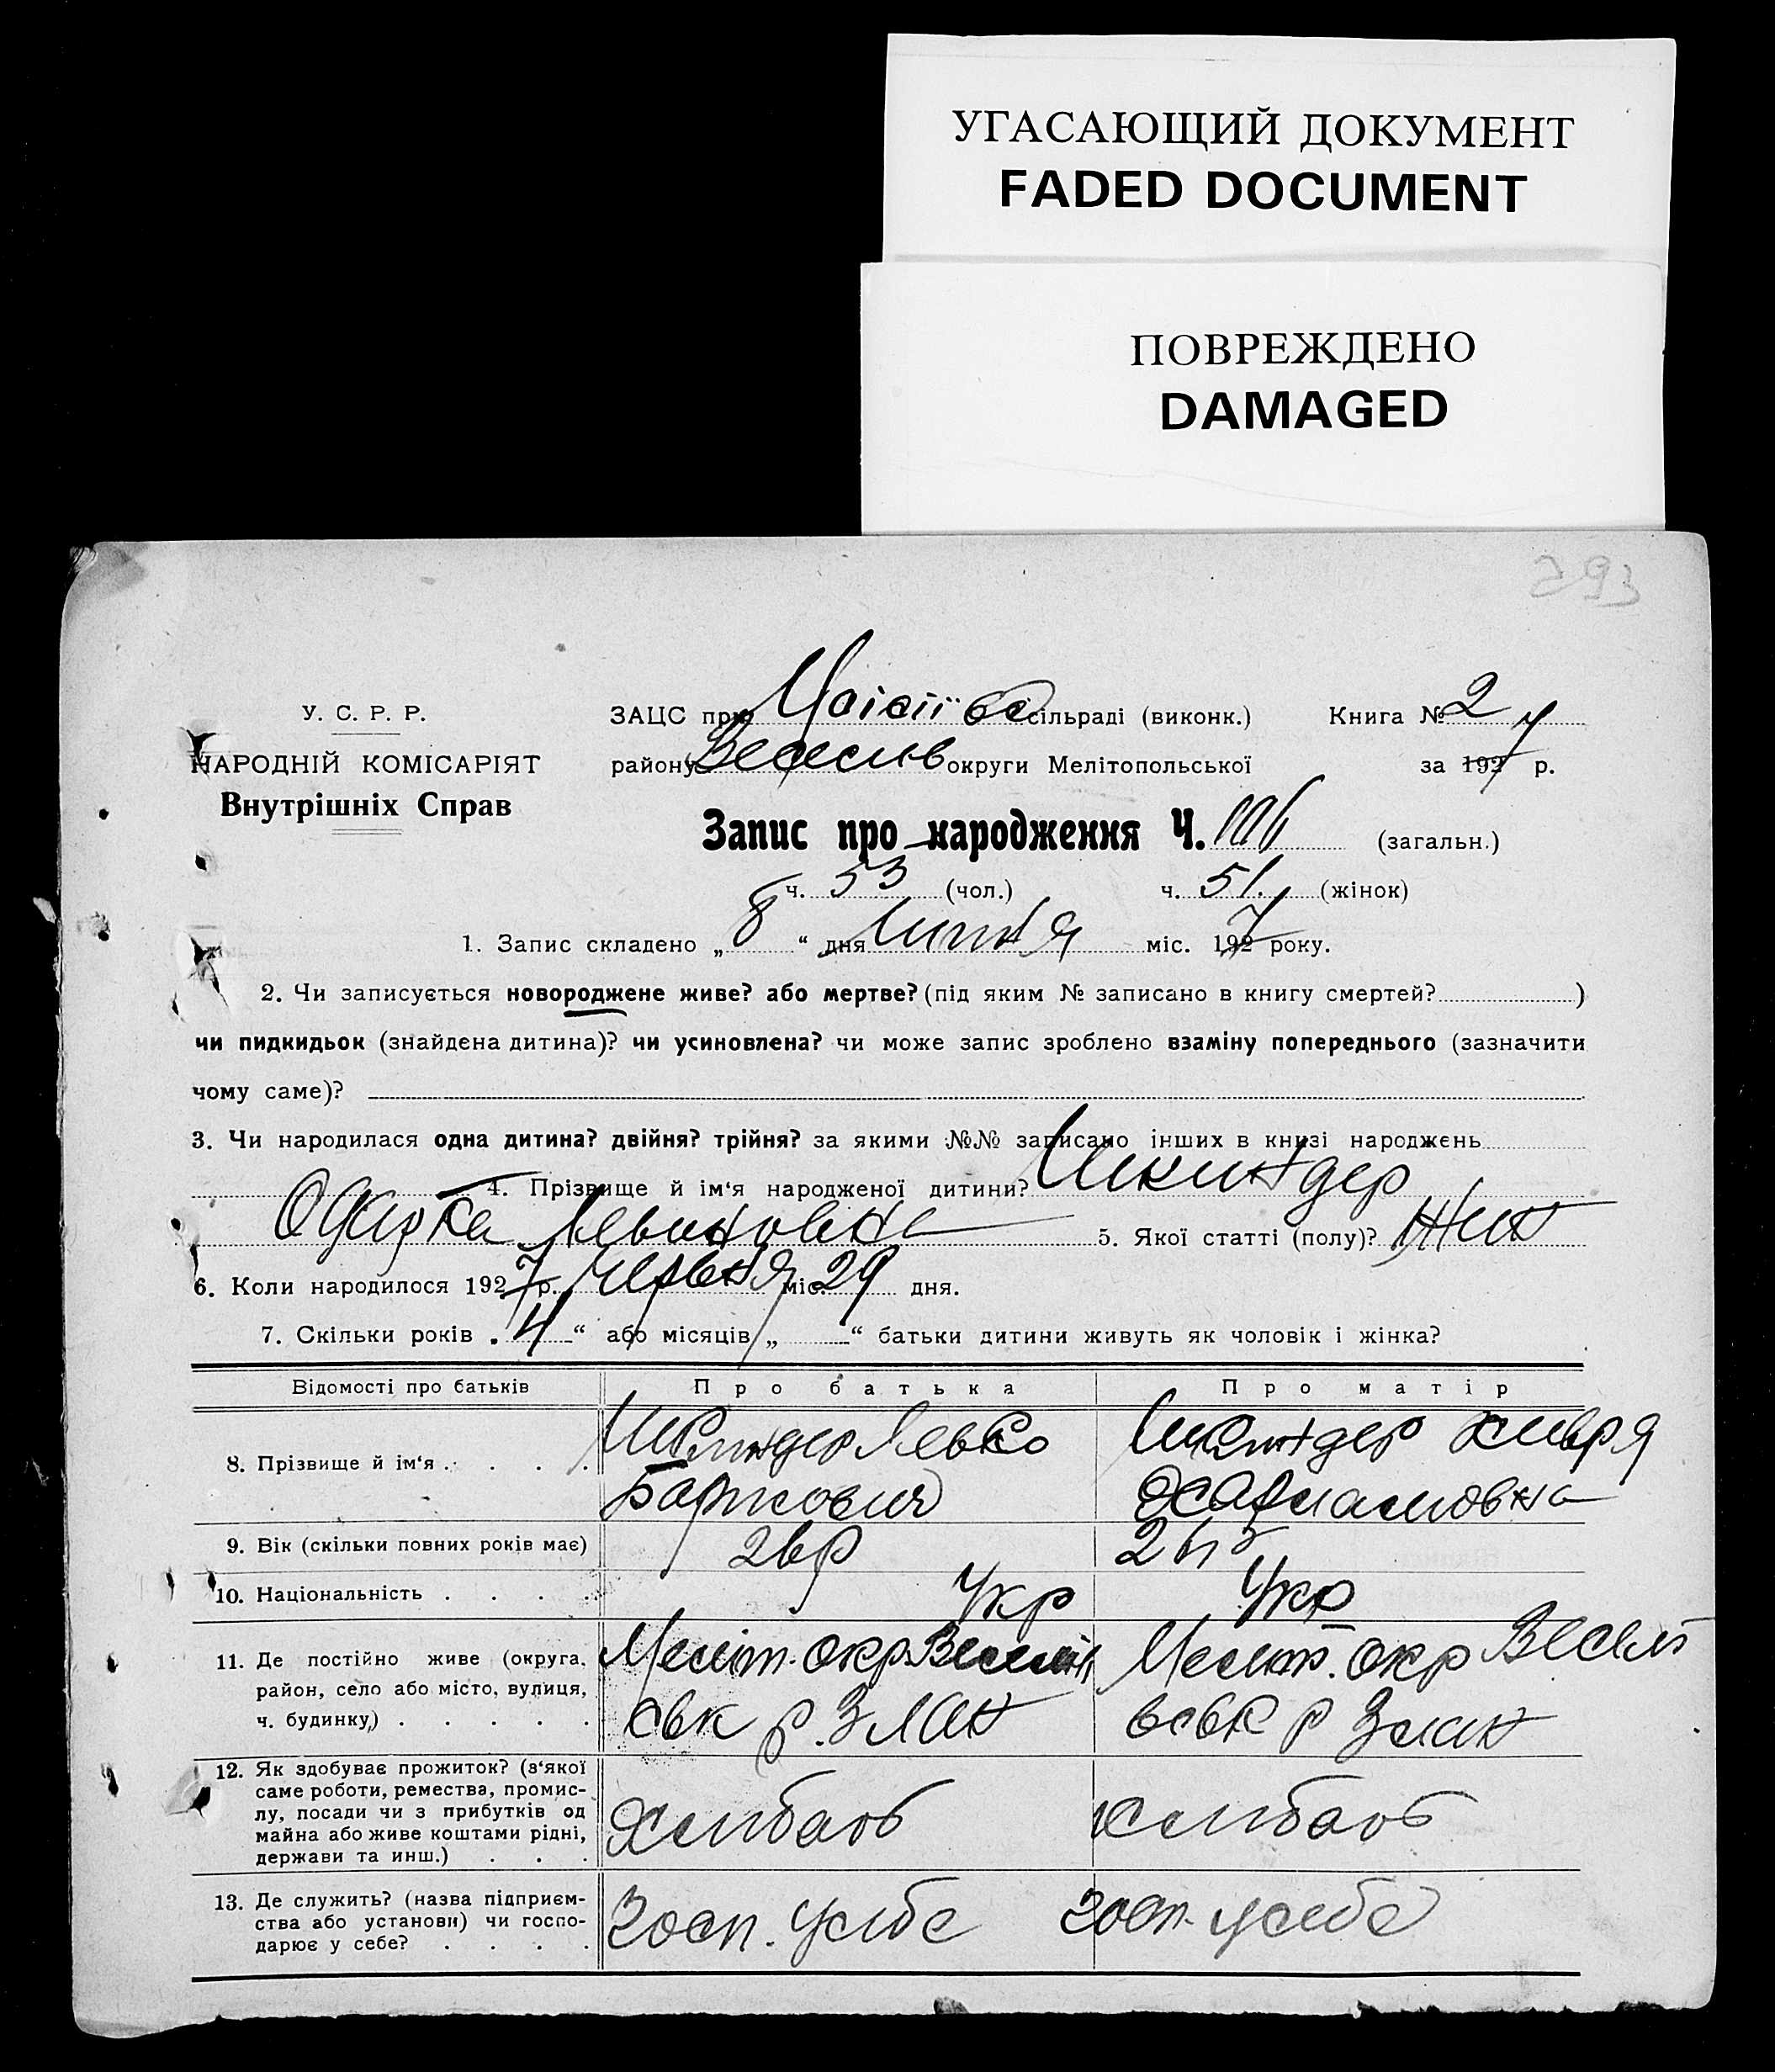 УГАСАЮЩИЙ ДОКУМЕНТ
FADED DOCUMENT
ПОВРЕЖДЕНО
DAMAGED
293
У. С. Р. Р.
НАРОДНІЙ КОМІСАРІЯТ
Внутрішніх Справ
ЗАЦС при сільраді (виконк.) Книга № 2
району Веселив округи Мелітопольської за 1927 р.
Запис про народження Ч. 106 (загальн.)
ч. 53 (чол.) ч. 51 (жінок)
1. Запис складено „8“ дня Липня міс. 1927 року.
2. Чи записується новороджене живе? або мертве? (під яким № записано в книгу смертей? )
чи пидкидьок (знайдена дитина)? чи усиновлена? чи може запис зроблено взаміну попереднього (зазначити
чому саме)?
3. Чи народилася одна дитина? двійня? трійня? за якими №№ записано інших в книзі народжень
4. Прізвище й ім'я народженої дитини? Шкиндер
Одарка Левковна 5. Якої статті (полу)? Жин
6. Коли народилося 1927 р. Червня міс. 29 дня.
7. Скільки років „4“ або місяців „ “ батьки дитини живуть як чоловік і жінка?
Відомості про батьків Про батька Про матір
8. Прізвище й ім'я . . . . Шкиндер Левко Шкиндер Хивря
Харламовна
9. Вік (скільки повних років має)
10. Національність . . . . Укр Укр
11. Де постійно живе (округа, район, село або місто, вулиця, ч. будинку) . . . . . Меліт. окр. Мелит. окр
р. р
12. Як здобуває прожиток? (з'якої саме роботи, ремества, промислу, посади чи з прибутків од майна або живе коштами рідні, держави та инш.) . . . Хлибаоб Хлибаоб
13. Де служить? (назва підприємства або установи) чи господарює у себе? . . . . Госп. у себе Госп. у себе